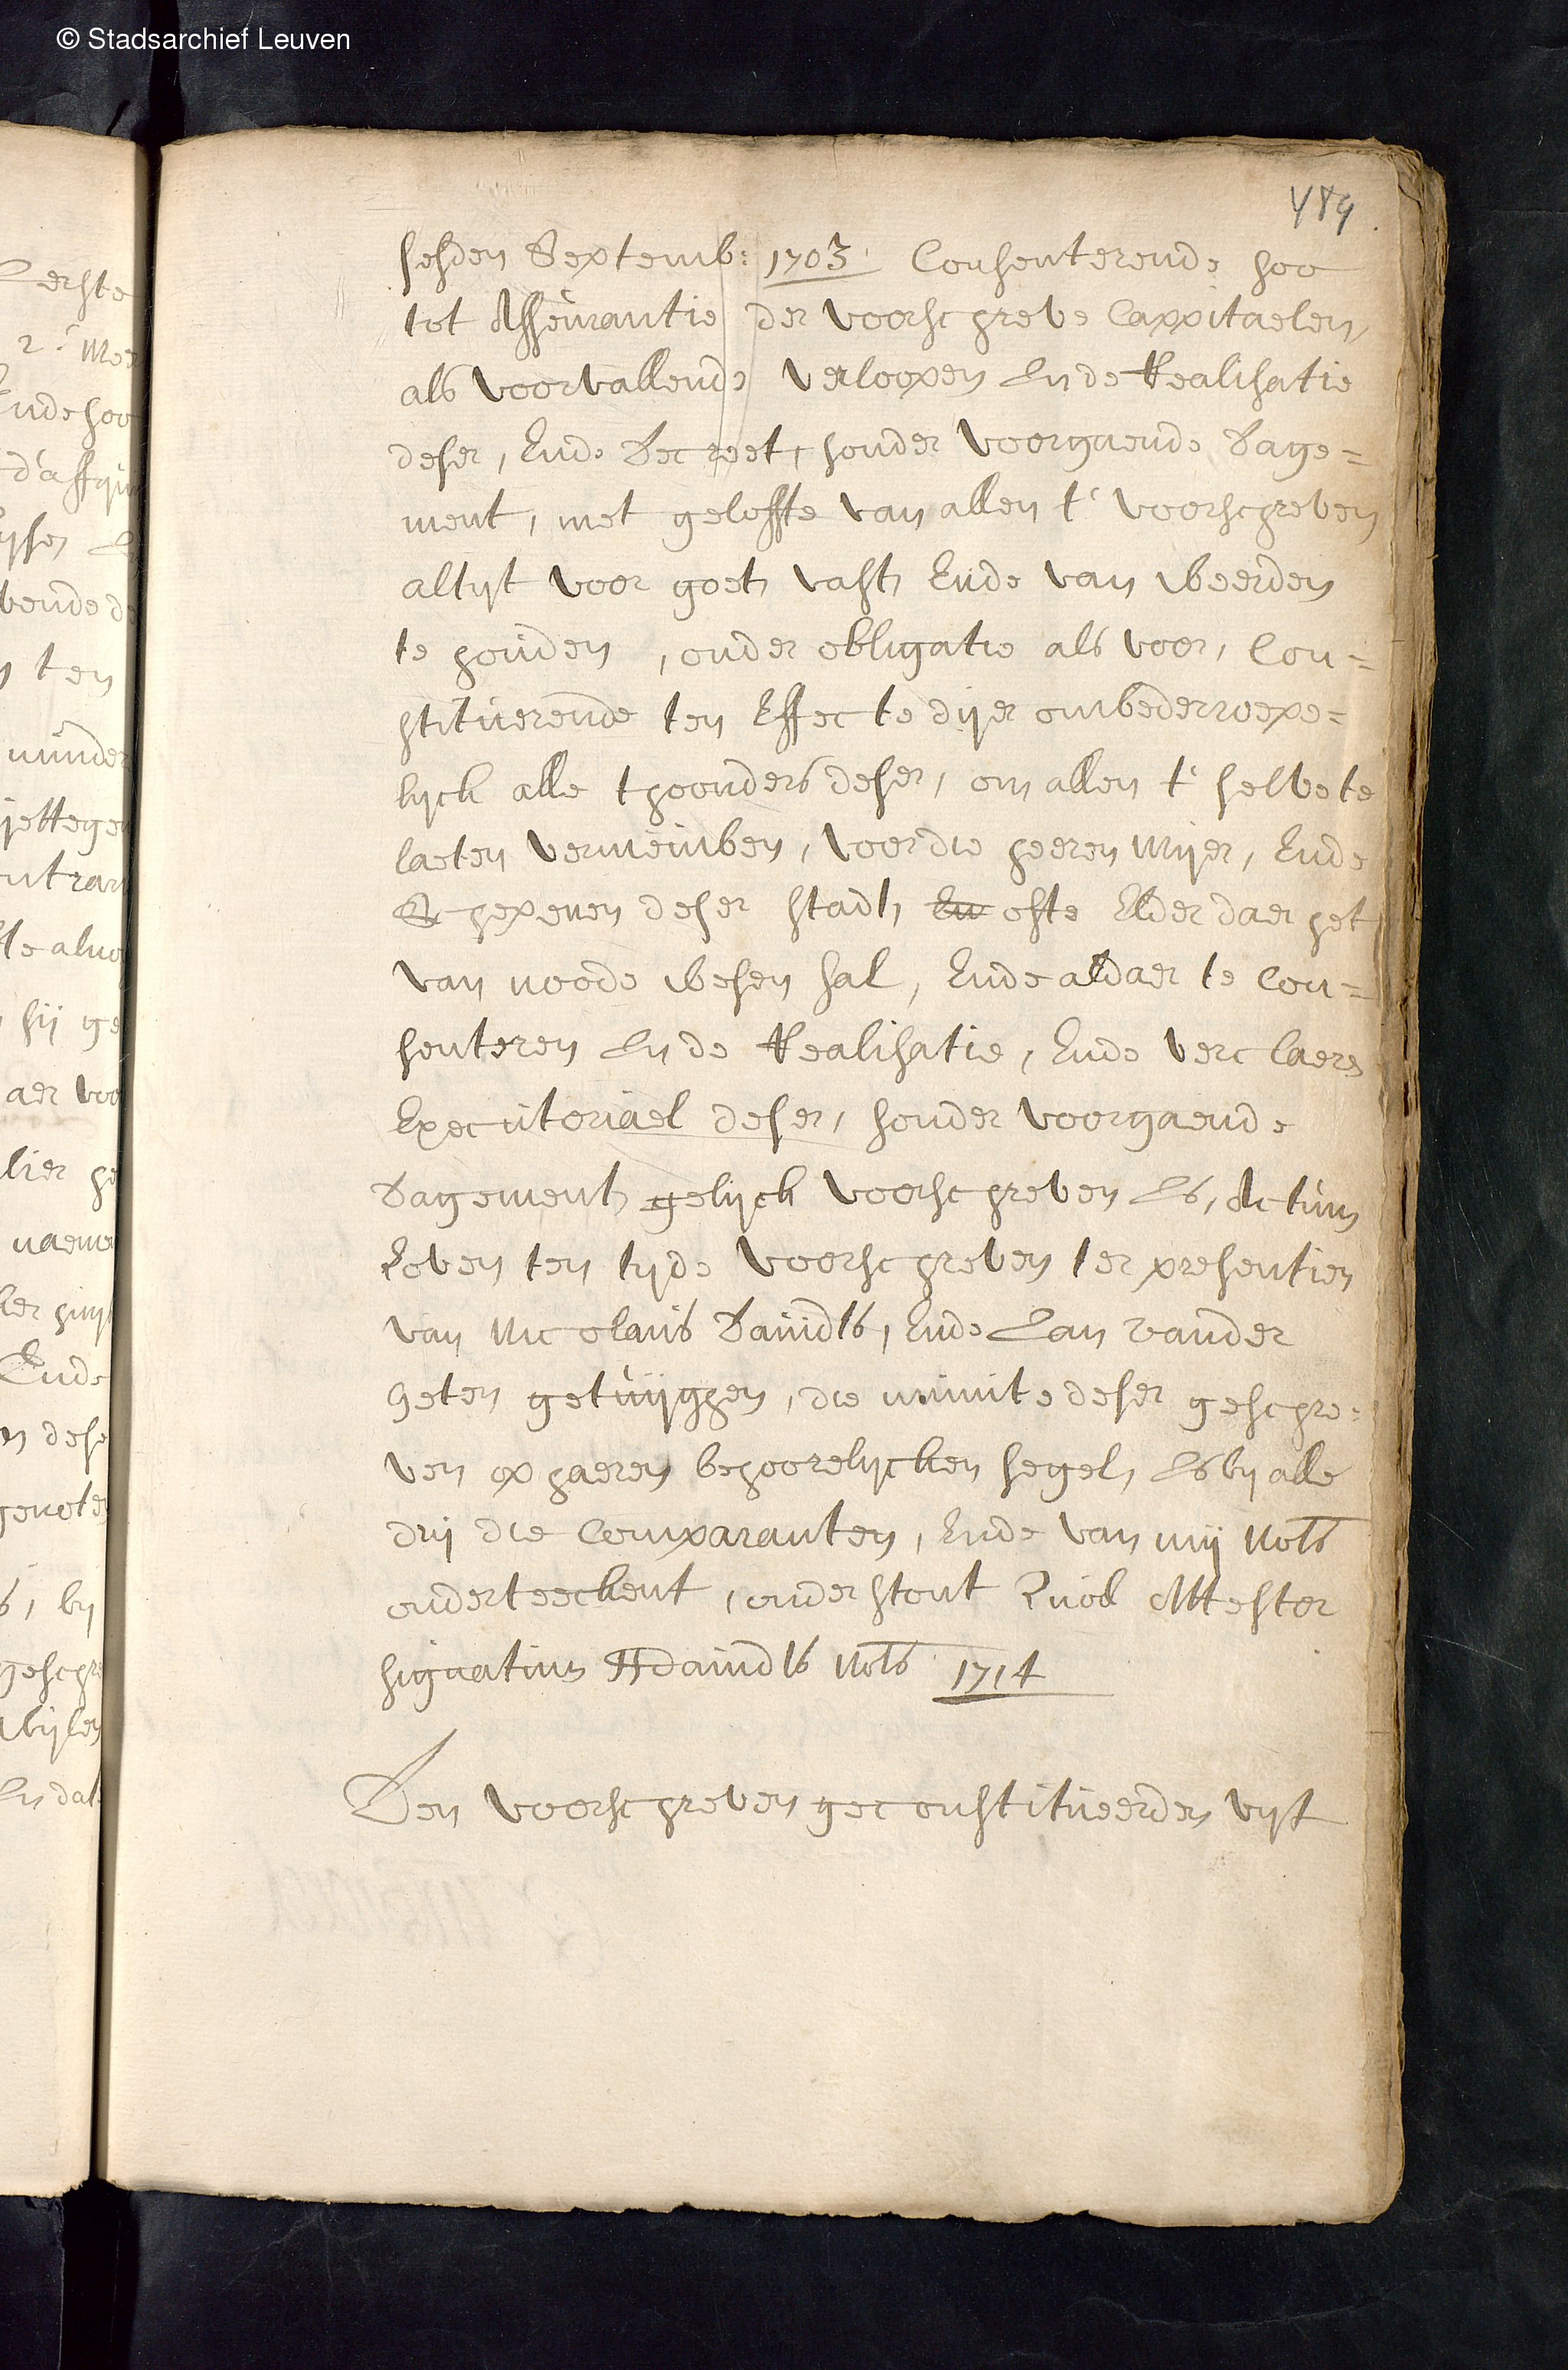 © Stadsarchief Leuven
489
sesden Septemb: 1703 Consenterende soo
tot Asseurantie der voorschreve Cappitaelen
als voorvallende verloopen In de Realisatie
deser, Ende Decreet, sonder voorgaende Dage=
ment, met geloffte van allen t' voorschreven
altyt voor goet vast Ende van weerden
te houden, onder obligatie als voor, Con=
stituerende ten Effecte dijer onwederroepe=
lyck alle thoonders deser, om allen t' selve te
laeten vernieuwen, voor die heeren Mijer, Ende
Schepenen deser stadt En ofte Elder daer het
van noode wesen sal, Ende aldaer te Con=
senteren In de Realisatie, Ende verclaere
Executoriael deser, sonder voorgaende
Dagement gelyck voorschreven Is, Actum
Loven ten tyde voorschreven ter presentien
van Nicolaus Davidts, Ende Jan vander
Heten getuijghen, die minute deser geschre=
ven op haeren behoorelycken segel, Is by alle
drij die Comparanten, Ende van mij Nots
onderteeckent, onder stont Quod Attestor
signatum Davidts Nots 1714
Den voorschreven geconstitueerden uyt
Eerste
Ende soo
ten
Ende